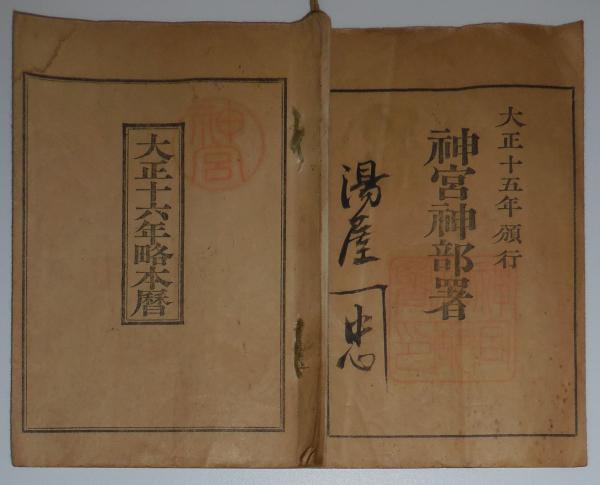 大正十五年頒行
神宮神部署
湯屋
忠
大正十六年略本暦
神宮